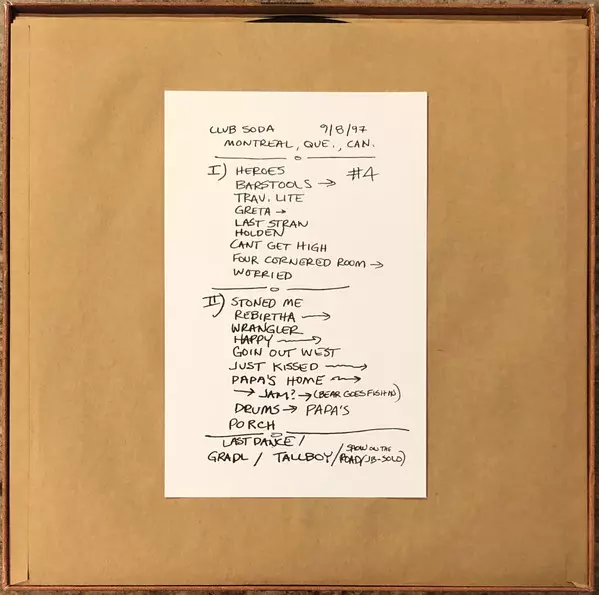 CLUB SODA 9/8/97
MONTREAL, QUE., CAN.
I) HEROES #4
BARSTOOLS →
TRAV. LITE
GRETA →
LAST STRAN
HOLDEN
CANT GET HIGH
FOUR CORNERED ROOM →
WORRIED
II) STONED ME
REBIRTHA →
WRANGLER
HAPPY →
GOIN OUT WEST
JUST KISSED →
PAPA'S HOME →
→ JAM? → (BEAR GOES FISHIN)
DRUMS → PAPA'S
PORCH
LAST DANCE /
GRADL / TALLBOY / SHOW ON THE
ROAD (JB-SOLO)